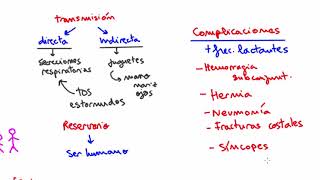 transmisión
directa
Indirecta
secreciones
respiratorias
TOS
estornudos
Juguetes
mano
nariz
ojos
Reservorio
Ser humano
Complicaciones
+ frec. lactantes
- Hemorragia
subconjunt.
- Hernia
- Neumonía
- Fracturas costales
- Síncopes